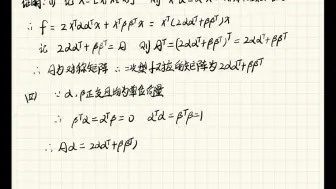 ∴ f = 2x^Tαα^Tx + x^Tββ^Tx = x^T(2αα^T+ββ^T)x
记 2αα^T+ββ^T = A 则 A^T=(2αα^T+ββ^T)^T = 2αα^T+ββ^T
∴ A为对称矩阵 ∴ 二次型f对应的矩阵为2αα^T+ββ^T
(Ⅱ) ∵ α,β正交且均为单位向量
∴ β^Tα=α^Tβ=0 α^Tα=β^Tβ=1
∴ Aα=2αα^T+ββ^T)